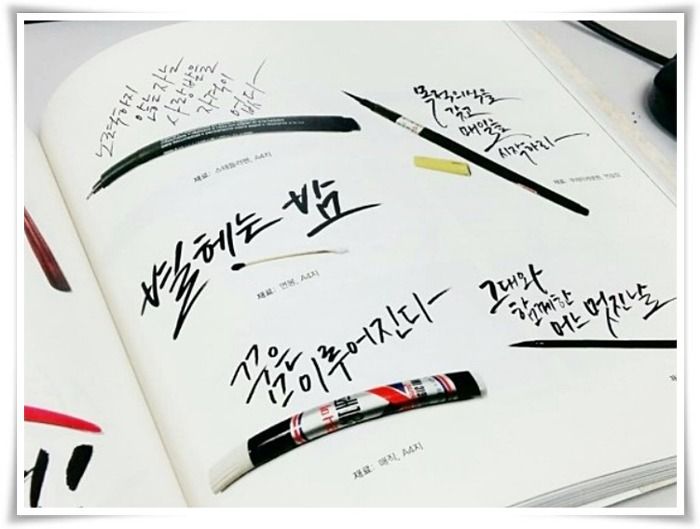 노력하지
않는자는
사랑받을
자격이
없다~
재료: 스테들러펜, A4지
목적의식을
갖고
매일을
시작하라~
재료:
별헤는 밤
재료: 면봉, A4지
그대와
함께한
어느 멋진날
꿈은
이루어진다~
재료: 매직, A4지